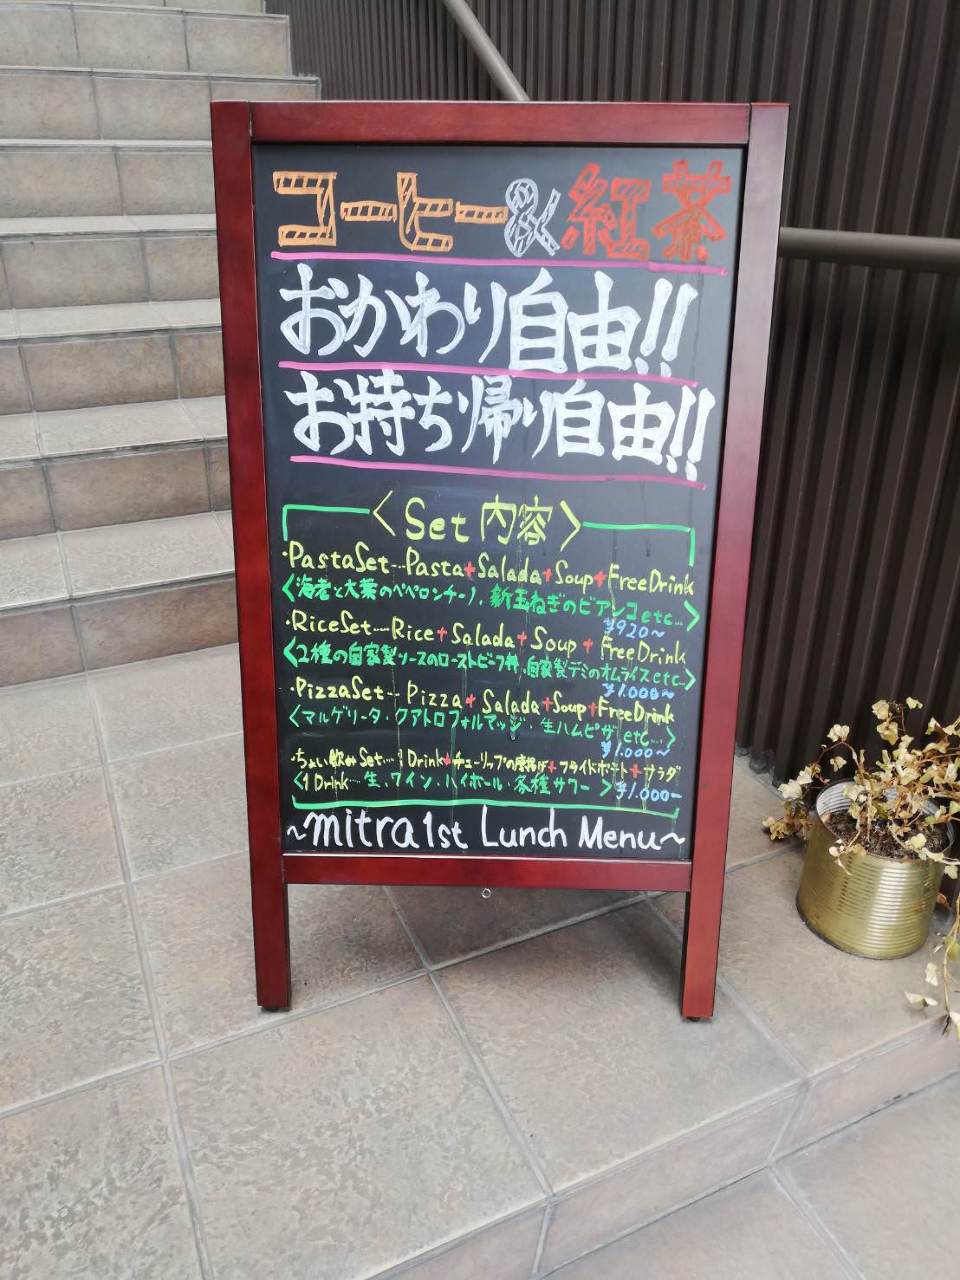 コーヒー&紅茶
おかわり自由!!
お持ち帰り自由!!
〈Set 内容〉
・PastaSet…Pasta+Salada+Soup+FreeDrink
〈海老と大葉のペペロンチーノ、新玉ねぎのビアンコetc…〉
¥920〜
・RiceSet……Rice+Salada+Soup+FreeDrink
〈2種の自家製ソースのローストビーフ丼、自家製デミのオムライスetc…〉
¥1.000〜
・PizzaSet…Pizza+Salada+Soup+FreeDrink
〈マルゲリータ・クアトロフォルマッジ・生ハムピザ etc…〉
¥1.000〜
・ちょい飲みSet…1Drink+チューリップの唐揚げ+フライドポテト+サラダ
〈1Drink…生、ワイン、ハイボール・各種サワー〉¥1.000-
~mitra1st Lunch Menu~